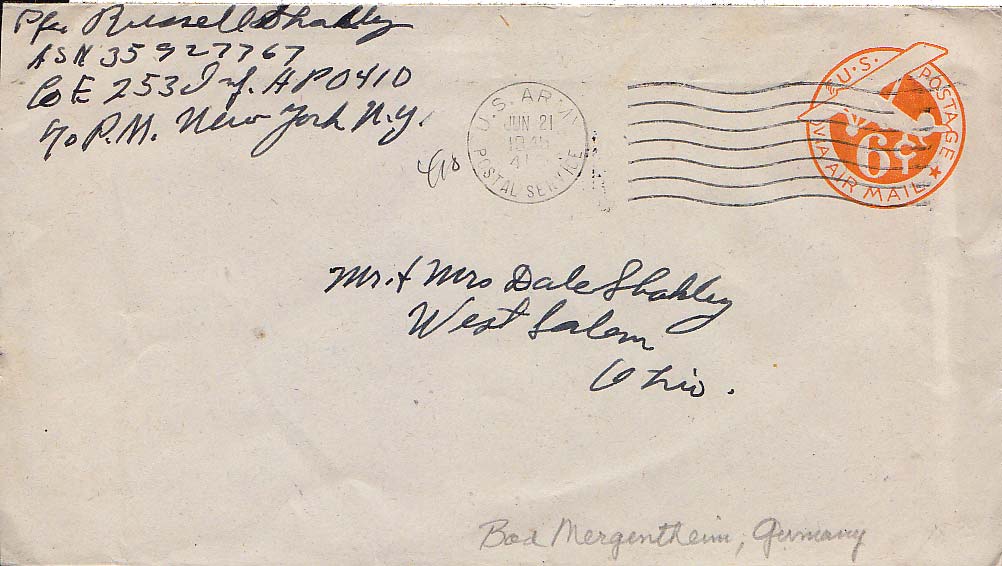 Pfc Russell Shakley
ASN 35927767
Co E 253 Inf. APO 410
c/o P.M. New York N.Y.
U.S. ARMY
JUN 21
1945
POSTAL SERVICE
U.S. POSTAGE
6¢
VIA AIR MAIL
Mr. & Mrs Dale Shakley
West Salem
Ohio.
Bad Mergentheim, Germany